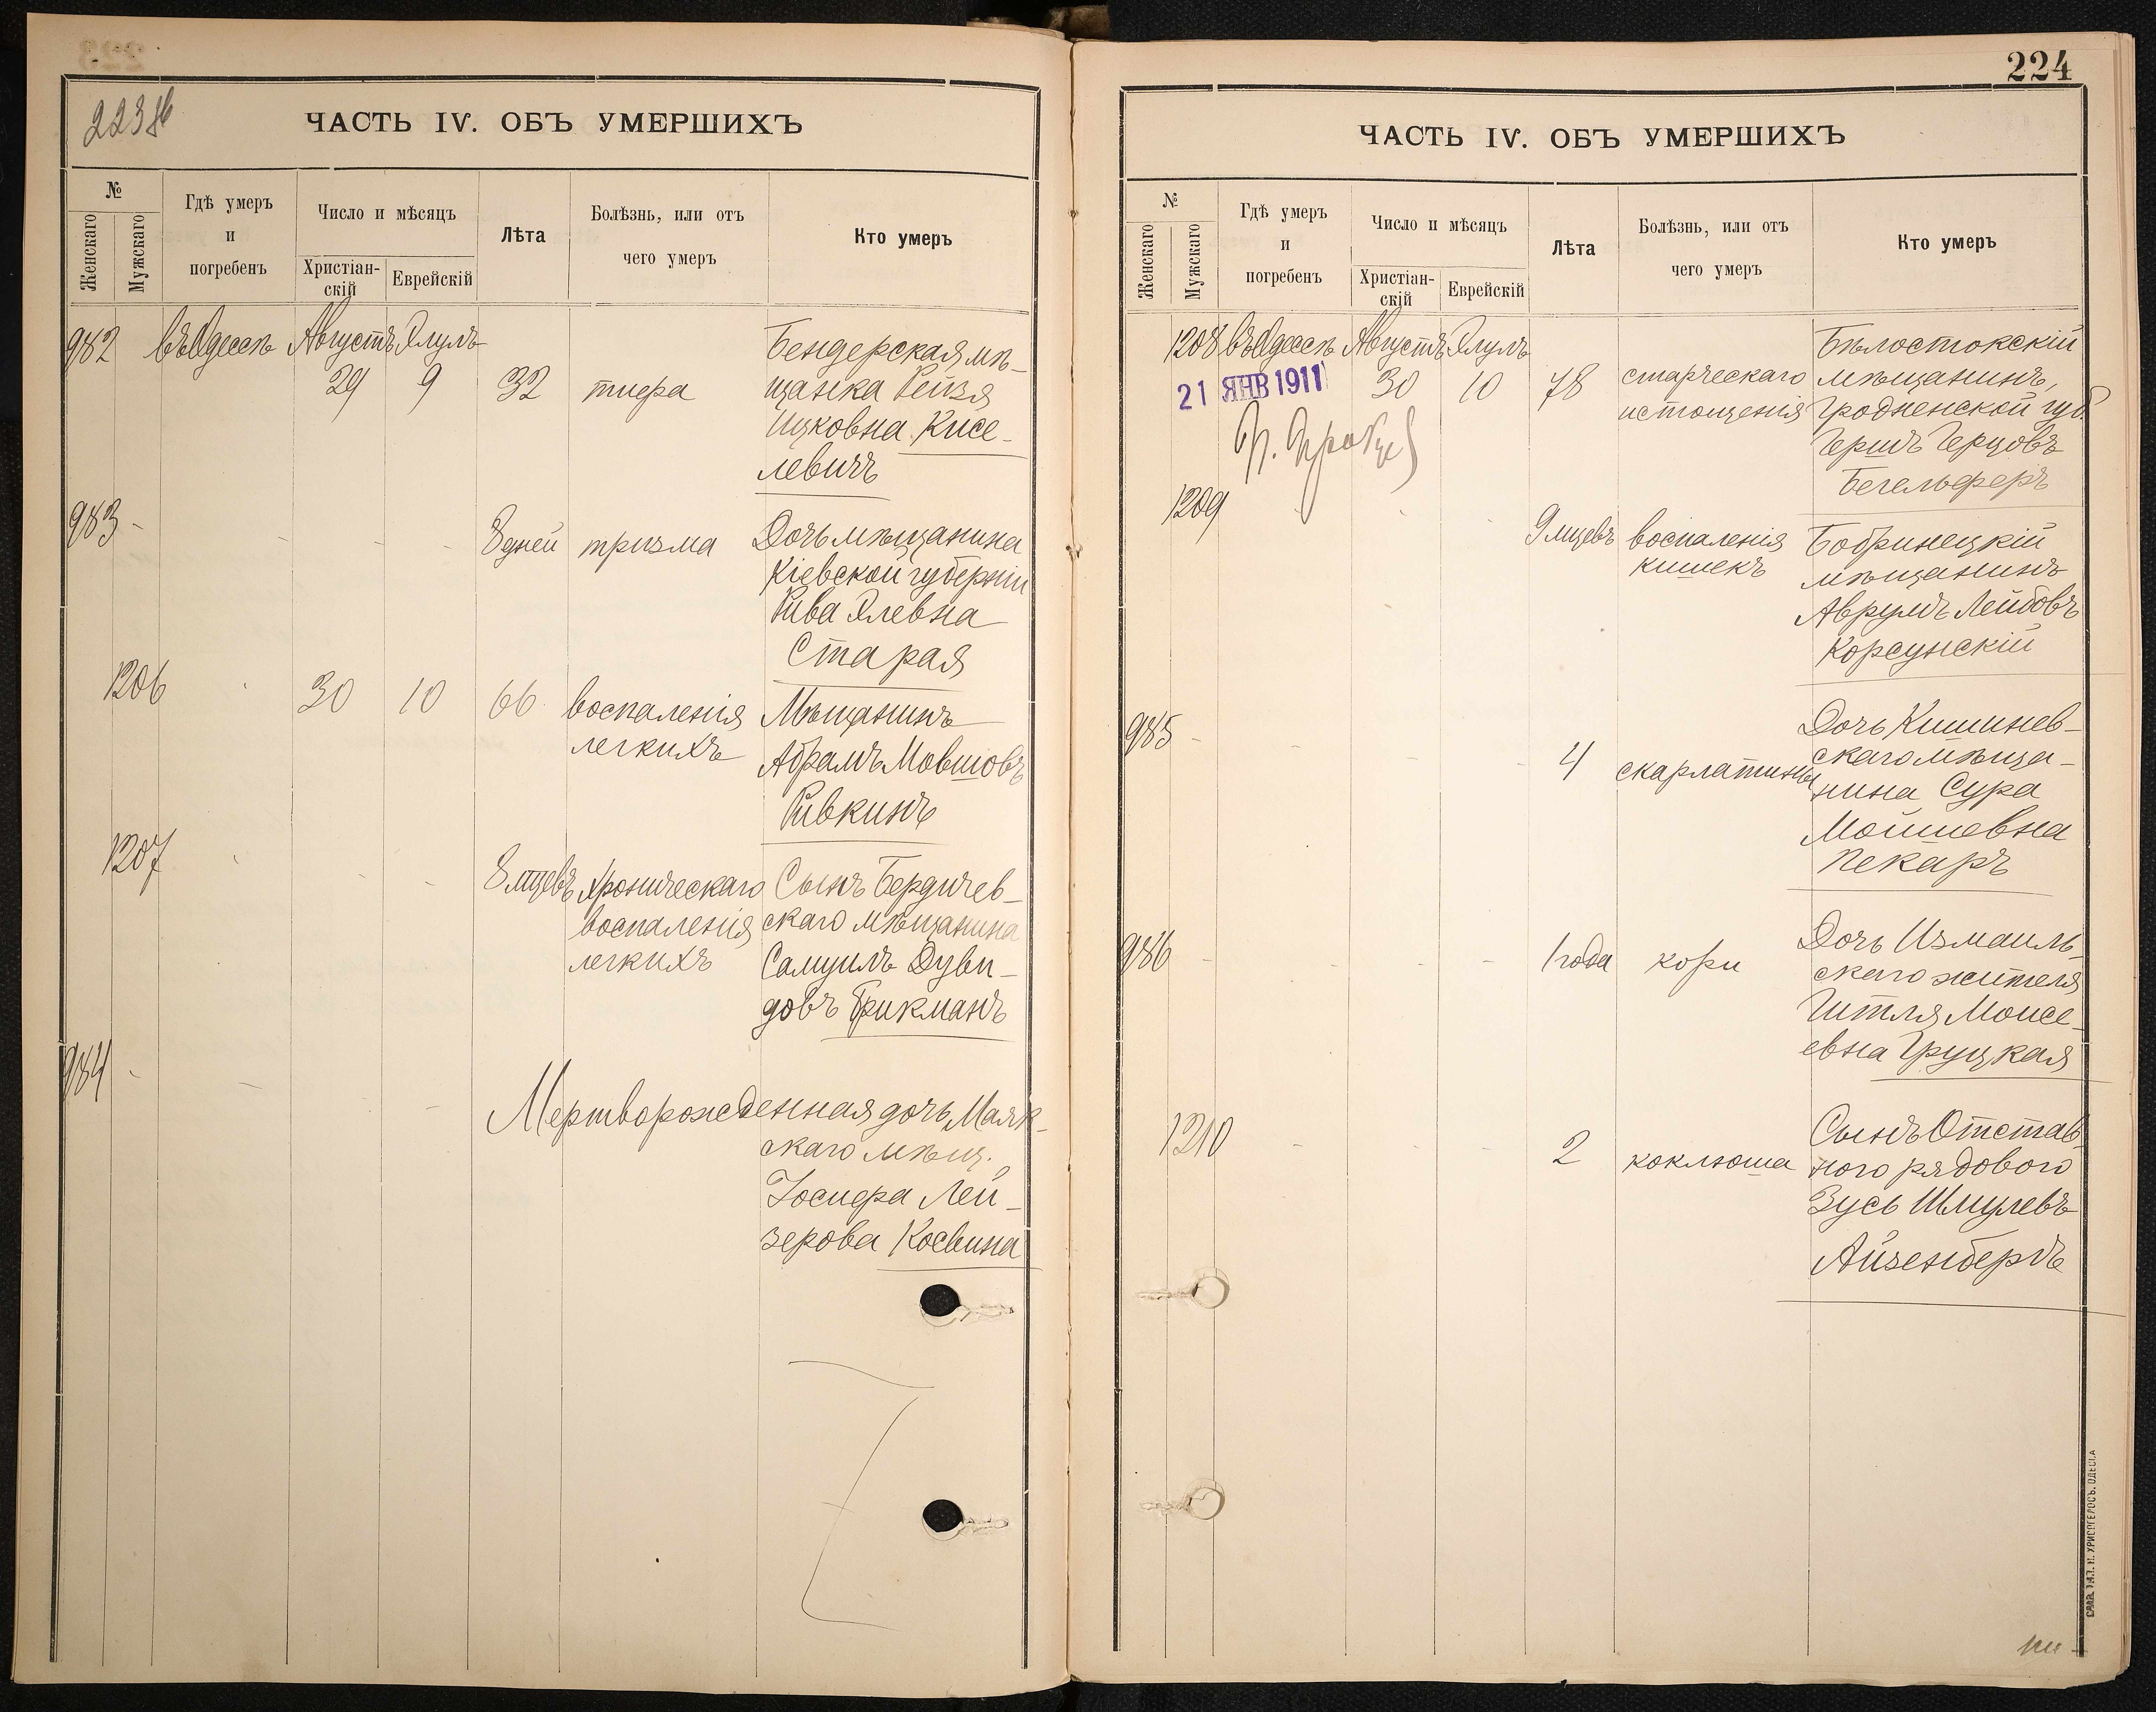 223 об
ЧАСТЬ IV. ОБЪ УМЕРШИХЪ
№
Женскаго
Мужскаго
Гдѣ умеръ
и
погребенъ
Число и мѣсяцъ
Христіан-
скій
Еврейскій
Лѣта
Болѣзнь, или отъ
чего умеръ
Кто умеръ
982 въ Одессѣ Августъ Элулъ Бендерская мѣ-
29 9 32 тифа щанка Рейзя
Ицковна Кисе-
левичъ
983 - - - - 8 дней тризма Дочь мѣщанина
Кіевской губерніи
Рива Элевна
Старая
1206 30 10 66 воспаленія Мѣщанинъ
легкихъ Абрамъ Мовшовъ
Ривкинъ
1207 - - 8 мцевъ хроническаго Сынъ Бердичев-
воспаленія скаго мѣщанина
легкихъ Самуилъ Дуви-
довъ Брикманъ
984 - - - - Мертворожденная дочь Маяк-
скаго мѣщ.
Іосифа Лей-
зерова Косвина
224
ЧАСТЬ IV. ОБЪ УМЕРШИХЪ
№
Женскаго
Мужскаго
Гдѣ умеръ
и
погребенъ
Число и мѣсяцъ
Христіан-
скій
Еврейскій
Лѣта
Болѣзнь, или отъ
чего умеръ
Кто умеръ
1208 въ Одессѣ Августъ Элулъ Бѣлостокскій
21 ЯНВ 1911 30 10 78 старческаго мѣщанинъ,
истощенія Гродненской губ.
Гершъ Герцовъ
Бегельферъ
1209 - - 9 мцевъ воспаленія Бобринецкій
кишекъ мѣщанинъ
Аврумъ Лейбовъ
Корсунскій
985 - - - - 4 скарлатины Дочь Кишинев-
скаго мѣща-
нина Сура
Мошиевна
Пекаръ
986 - - - - 1 года кори Дочь Измаиль-
скаго жителя
Гитля Моисе-
евна Груцкая
1210 - - - 2 коклюша Сынъ Отстав-
ного рядового
Зусь Шмулевъ
Айзенбергъ